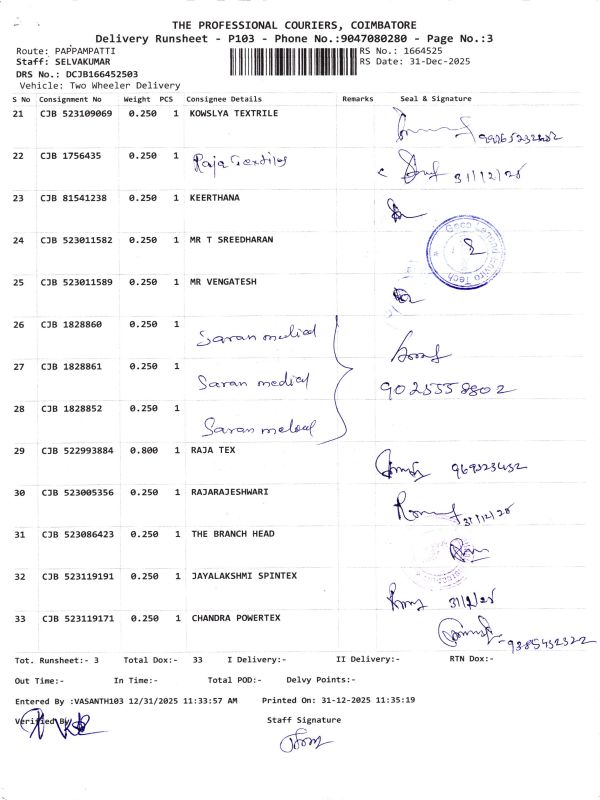 THE PROFESSIONAL COURIERS, COIMBATORE
Delivery Runsheet - P103 - Phone No.:9047080280 - Page No.:3
Route: PAPPAMPATTI RS No.: 1664525
Staff: SELVAKUMAR RS Date: 31-Dec-2025
DRS No.: DCJB166452503
Vehicle: Two Wheeler Delivery
S No Consignment No Weight PCS Consignee Details Remarks Seal & Signature
21 CJB 523109069 0.250 1 KOWSLYA TEXTRILE
22 CJB 1756435 0.250 1 Raja Textiles 31/12/25
23 CJB 81541238 0.250 1 KEERTHANA
24 CJB 523011582 0.250 1 MR T SREEDHARAN
25 CJB 523011589 0.250 1 MR VENGATESH
26 CJB 1828860 0.250 1 Saran medical
27 CJB 1828861 0.250 1 Saran medical 9025558802
28 CJB 1828852 0.250 1 Saran medical
29 CJB 522993884 0.800 1 RAJA TEX
30 CJB 523005356 0.250 1 RAJARAJESHWARI 31/12/25
31 CJB 523086423 0.250 1 THE BRANCH HEAD
32 CJB 523119191 0.250 1 JAYALAKSHMI SPINTEX
33 CJB 523119171 0.250 1 CHANDRA POWERTEX 9385432322
Tot. Runsheet:- 3 Total Dox:- 33 I Delivery:- II Delivery:- RTN Dox:-
Out Time:- In Time:- Total POD:- Delvy Points:-
Entered By :VASANTH103 12/31/2025 11:33:57 AM Printed On: 31-12-2025 11:35:19
Verified By Staff Signature